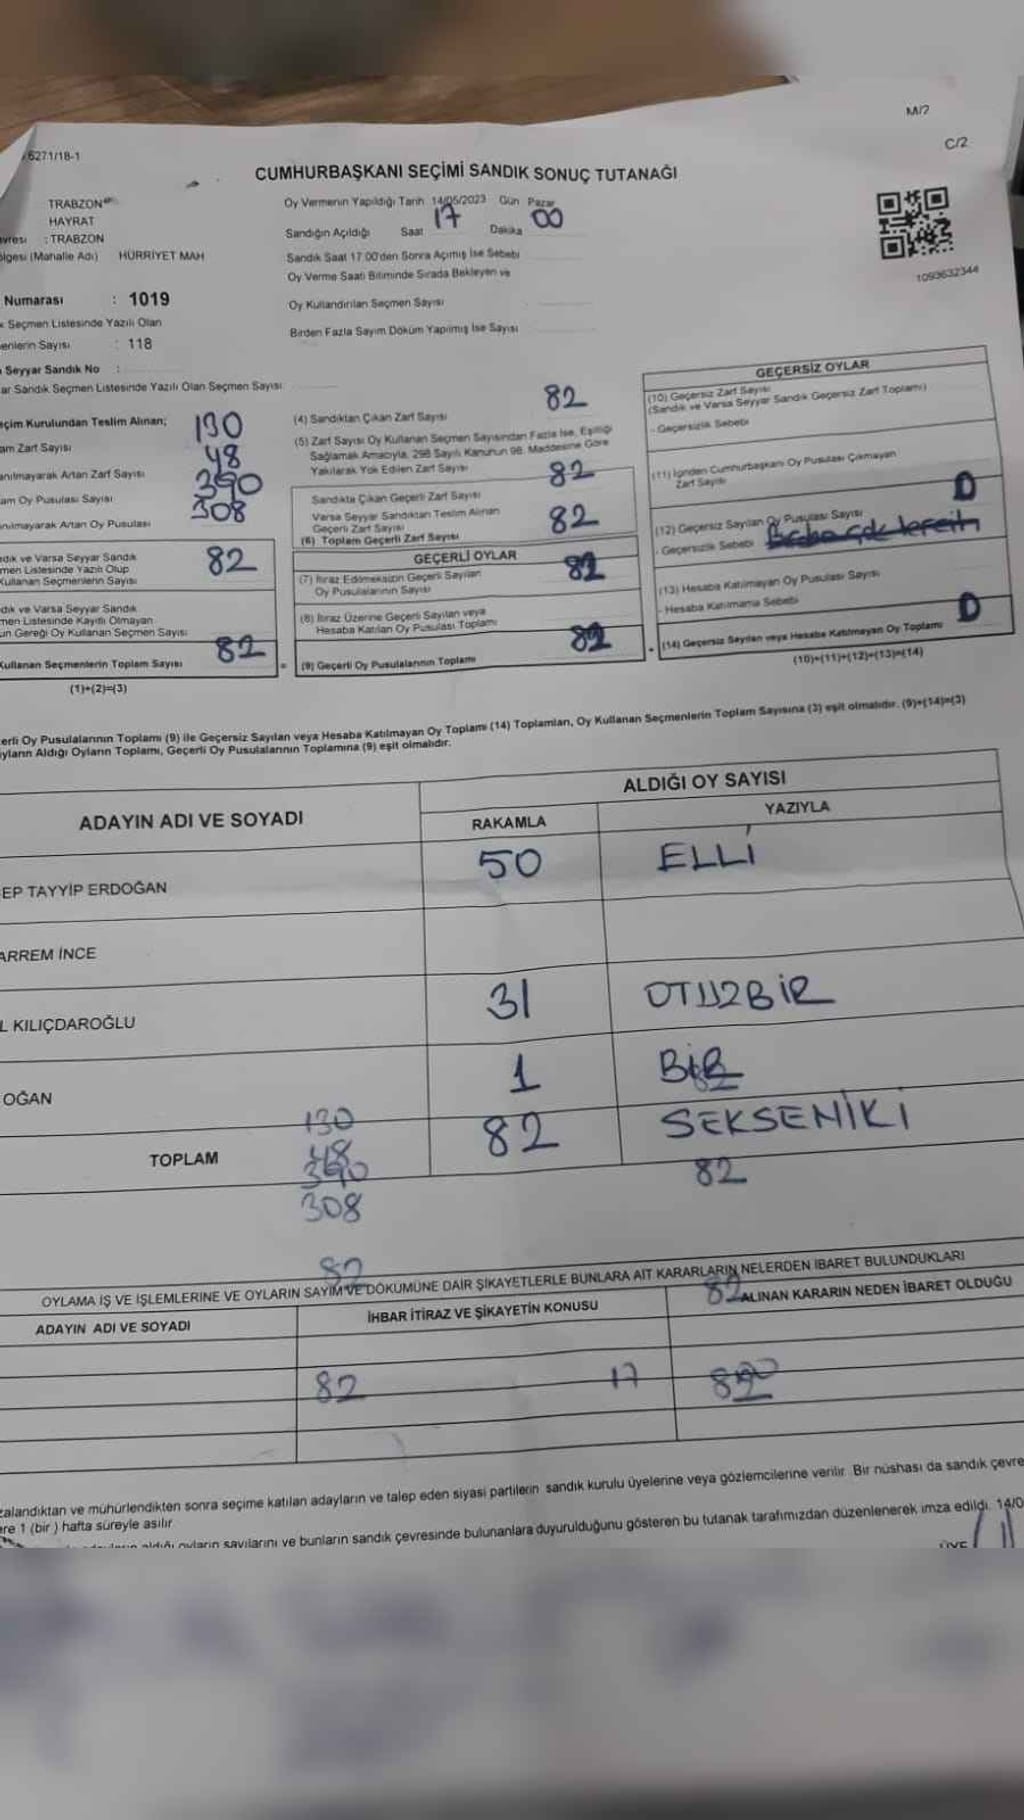 M/2
C/2
6271/18-1
CUMHURBAŞKANI SEÇİMİ SANDIK SONUÇ TUTANAĞI
TRABZON
HAYRAT
: TRABZON
(Mahalle Adı) HÜRRİYET MAH
Numarası : 1019
Seçmen Listesinde Yazılı Olan
Sayısı : 118
Seyyar Sandık No :
Sandık Seçmen Listesinde Yazılı Olan Seçmen Sayısı
Oy Vermenin Yapıldığı Tarih 14/05/2023 Gün Pazar
Sandığın Açıldığı Saat 17 Dakika 00
Sandık Saat 17:00'den Sonra Açılmış İse Sebebi
Oy Verme Saati Bitiminde Sırada Bekleyen ve
Oy Kullandırılan Seçmen Sayısı
Birden Fazla Sayım Döküm Yapılmış İse Sayısı
1093632344
Kurulundan Teslim Alınan;
Zarf Sayısı 130
Artan Zarf Sayısı 48
Oy Pusulası Sayısı 390
Artan Oy Pusulası 308
ve Varsa Seyyar Sandık
Listesinde Yazılı Olup
Kullanan Seçmenlerin Sayısı 82
ve Varsa Seyyar Sandık
Listesinde Kayıtlı Olmayan
Gereği Oy Kullanan Seçmen Sayısı
Kullanan Seçmenlerin Toplam Sayısı 82
(1)+(2)=(3)
(4) Sandıktan Çıkan Zarf Sayısı 82
(5) Zarf Sayısı Oy Kullanan Seçmen Sayısından Fazla İse, Eşitliği
Sağlamak Amacıyla, 298 Sayılı Kanunun 98. Maddesine Göre
Yakılarak Yok Edilen Zarf Sayısı
Sandıkta Çıkan Geçerli Zarf Sayısı 82
Varsa Seyyar Sandıktan Teslim Alınan
Geçerli Zarf Sayısı
(6) Toplam Geçerli Zarf Sayısı 82
GEÇERLİ OYLAR
(7) İtiraz Edilmeksizin Geçerli Sayılan
Oy Pusulasının Sayısı 82
(8) İtiraz Üzerine Geçerli Sayılan veya
Hesaba Katılan Oy Pusulası Toplamı
(9) Geçerli Oy Pusulalarının Toplamı 82
GEÇERSİZ OYLAR
(10) Geçersiz Zarf Sayısı
(Sandık ve Varsa Seyyar Sandık Geçersiz Zarf Toplamı)
- Geçersizlik Sebebi
(11) İçinden Cumhurbaşkanı Oy Pusulası Çıkmayan
Zarf Sayısı
(12) Geçersiz Sayılan Oy Pusulası Sayısı 0
- Geçersizlik Sebebi
(13) Hesaba Katılmayan Oy Pusulası Sayısı
- Hesaba Katılmama Sebebi
(14) Geçersiz Sayılan veya Hesaba Katılmayan Oy Toplamı 0
(10)+(11)+(12)+(13)=(14)
Oy Pusulalarının Toplamı (9) ile Geçersiz Sayılan veya Hesaba Katılmayan Oy Toplamı (14) Toplamları, Oy Kullanan Seçmenlerin Toplam Sayısına (3) eşit olmalıdır. (9)+(14)=(3)
Aldığı Oyların Toplamı, Geçerli Oy Pusulalarının Toplamına (9) eşit olmalıdır.
ADAYIN ADI VE SOYADI
ALDIĞI OY SAYISI
RAKAMLA YAZIYLA
EP TAYYİP ERDOĞAN 50 ELLİ
ARREM İNCE
L KILIÇDAROĞLU 31 OTUZBİR
OĞAN 1 BİR
TOPLAM 82 SEKSENİKİ
130
48
390
308
82
82
OYLAMA İŞ VE İŞLEMLERİNE VE OYLARIN SAYIM VE DÖKÜMÜNE DAİR ŞİKAYETLERLE BUNLARA AİT KARARLARIN NELERDEN İBARET BULUNDUKLARI
ADAYIN ADI VE SOYADI İHBAR İTİRAZ VE ŞİKAYETİN KONUSU 82 ALINAN KARARIN NEDEN İBARET OLDUĞU
82 17
zalandıktan ve mühürlendikten sonra seçime katılan adayların ve talep eden siyasi partilerin sandık kurulu üyelerine veya gözlemcilerine verilir. Bir nüshası da sandık çevre
ere 1 (bir) hafta süreyle asılır
aldığı oyların sayılarını ve bunların sandık çevresinde bulunanlara duyurulduğunu gösteren bu tutanak tarafımızdan düzenlenerek imza edildi. 14/0
ÜYE